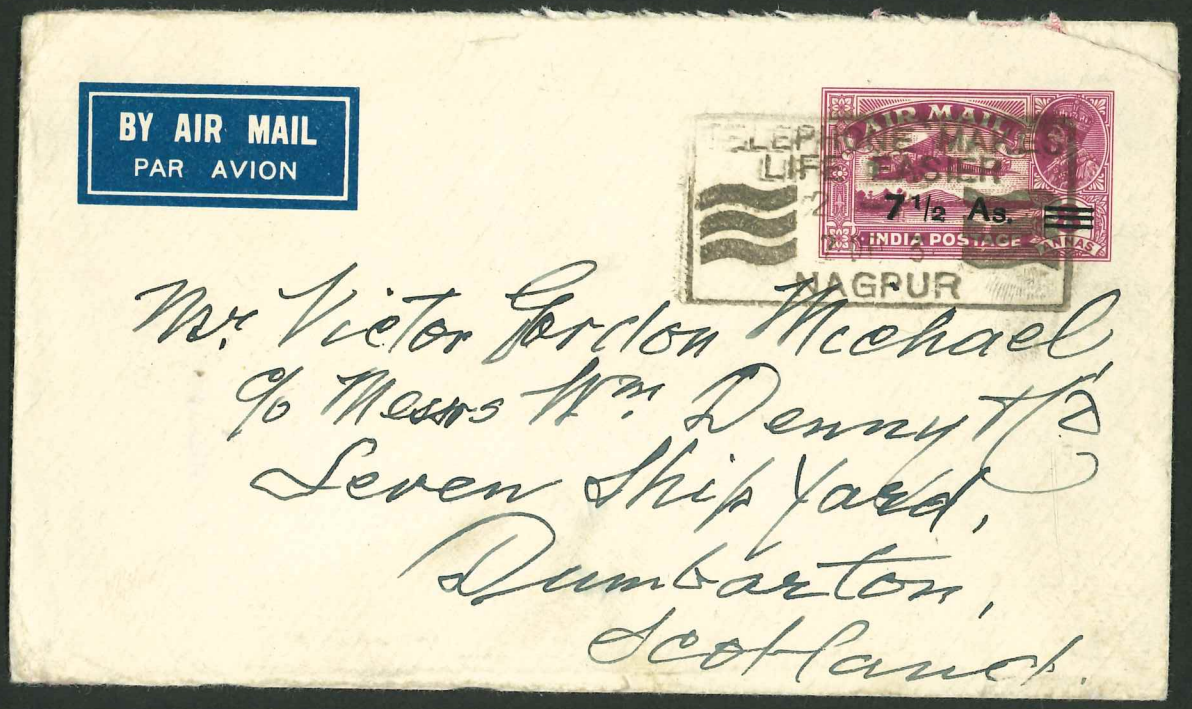 BY AIR MAIL
PAR AVION
AIR MAIL
TELEPHONE MAKES
LIFE EASIER
7½ As.
INDIA POSTAGE
ANNAS
NAGPUR
Mr. Victor Gordon Michael,
c/o Messrs Wm Denny &
Leven Ship Yard,
Dumbarton,
Scotland.